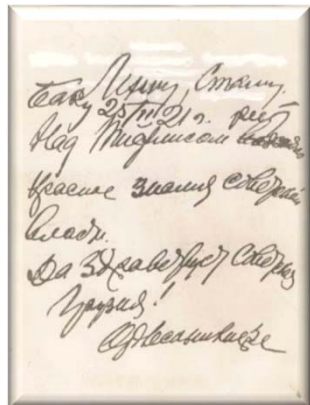 Ленину, Сталину.
Баку 25/II 21 г.
Над Тифлисом реет
Красное знамя советской
власти.
Да здравствует Советская
Грузия!
Орджоникидзе